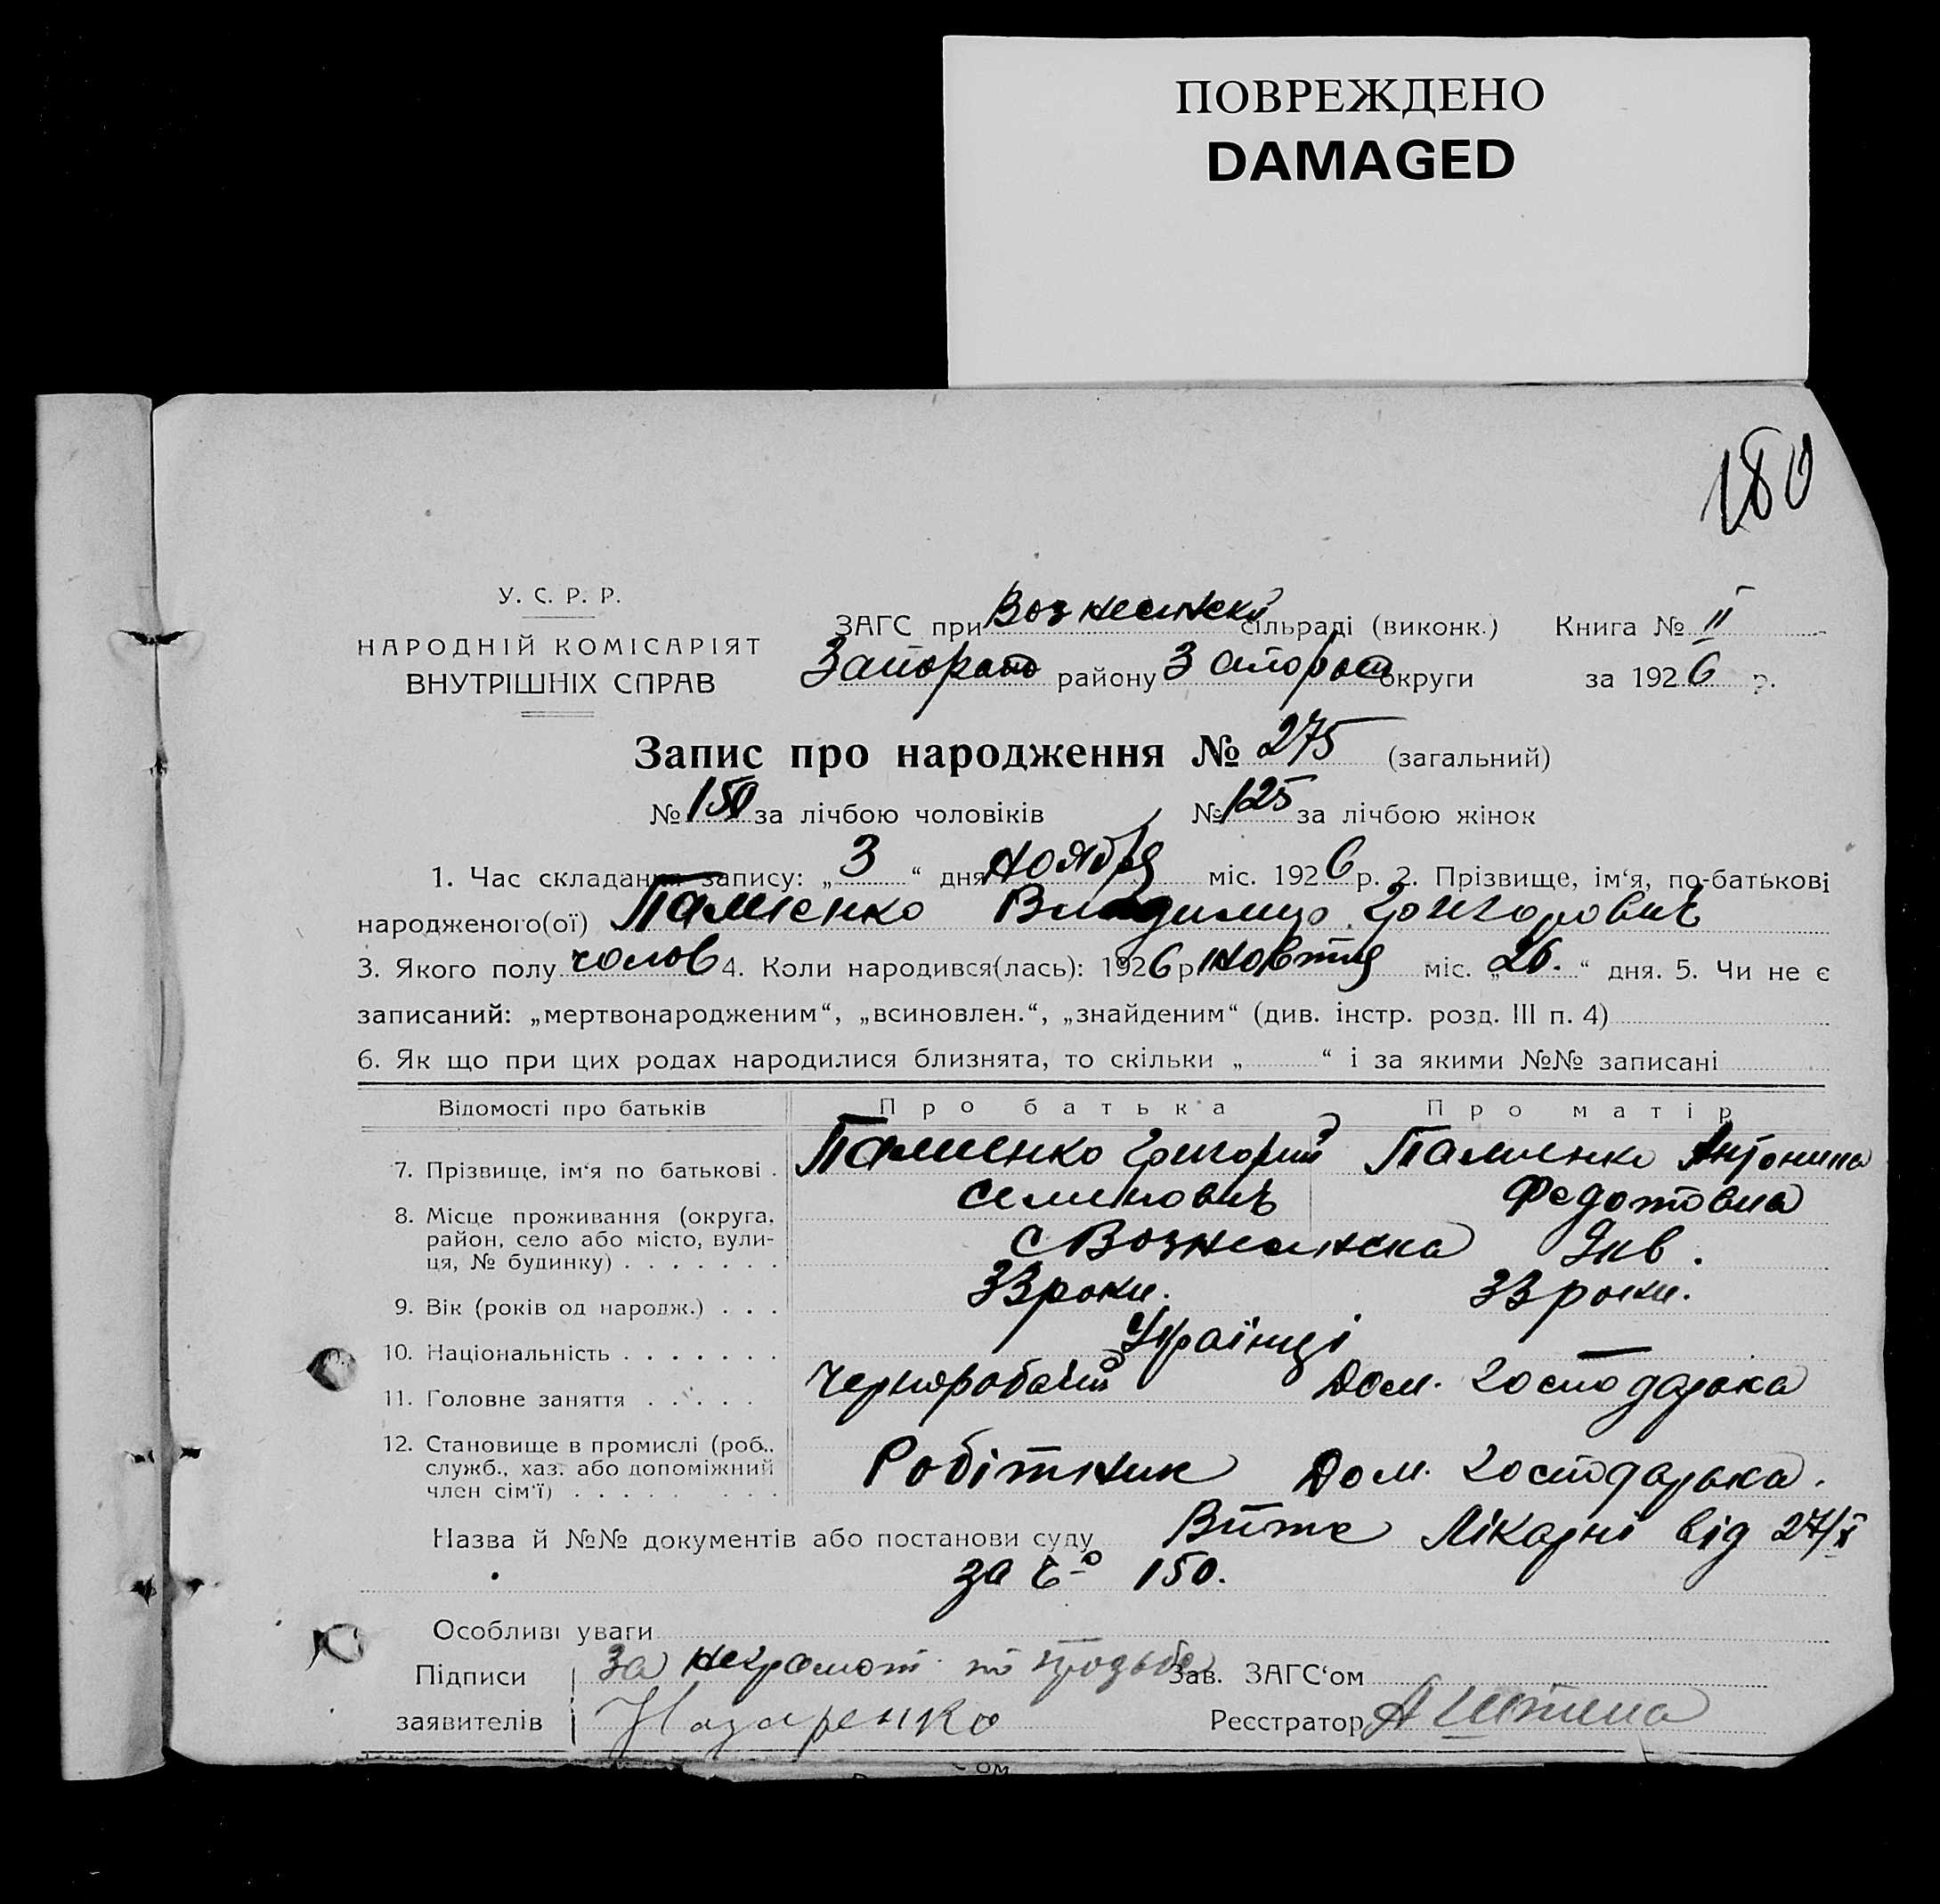 ПОВРЕЖДЕНО
DAMAGED
180
У. С. Р. Р.
НАРОДНІЙ КОМІСАРІЯТ
ВНУТРІШНІХ СПРАВ
ЗАГС при Вознесенскій сільраді (виконк.) Книга № II
Запорож району Запорож округи за 1926 р.
Запис про народження № 275 (загальний)
№ 150 за лічбою чоловіків № 125 за лічбою жінок
1. Час складання запису: „3“ дня ноября міс. 1926 р. 2. Прізвище, ім‘я, по-батькові
народженого(ої) Владимир Григорович
3. Якого полу чолов 4. Коли народився(лась): 1926 р. Жовтня міс. „26.“ дня. 5. Чи не є
записаний: „мертвонародженим“, „всиновлен.“, „знайденим“ (див. інстр. розд. III п. 4)
6. Як що при цих родах народилися близнята, то скільки „ “ і за якими №№ записані
Відомості про батьків Про батька Про матір
7. Прізвище, ім‘я по батькові . Григорий Антонина
Семенович Федотовна
8. Місце проживання (округа, район, село або місто, вулиця, № будинку) . . . . . . . с Вознесенска
9. Вік (років од народж.) . . . 33 роки. 33 роки.
10. Національність . . . . . . . Українці
11. Головне заняття . . . . . Чернорабочий Дом. господарька
12. Становище в промислі (роб., служб., хаз. або допоміжний член сім‘ї) . . . . . . . . Робітник Дом. господарька.
Назва й №№ документів або постанови суду Витяг Лікарні від 27/X
за № 150.
Особливі уваги
Підписи За неграмот. по прозьбе Зав. ЗАГС‘ом
заявителів Назаренко Реєстратор